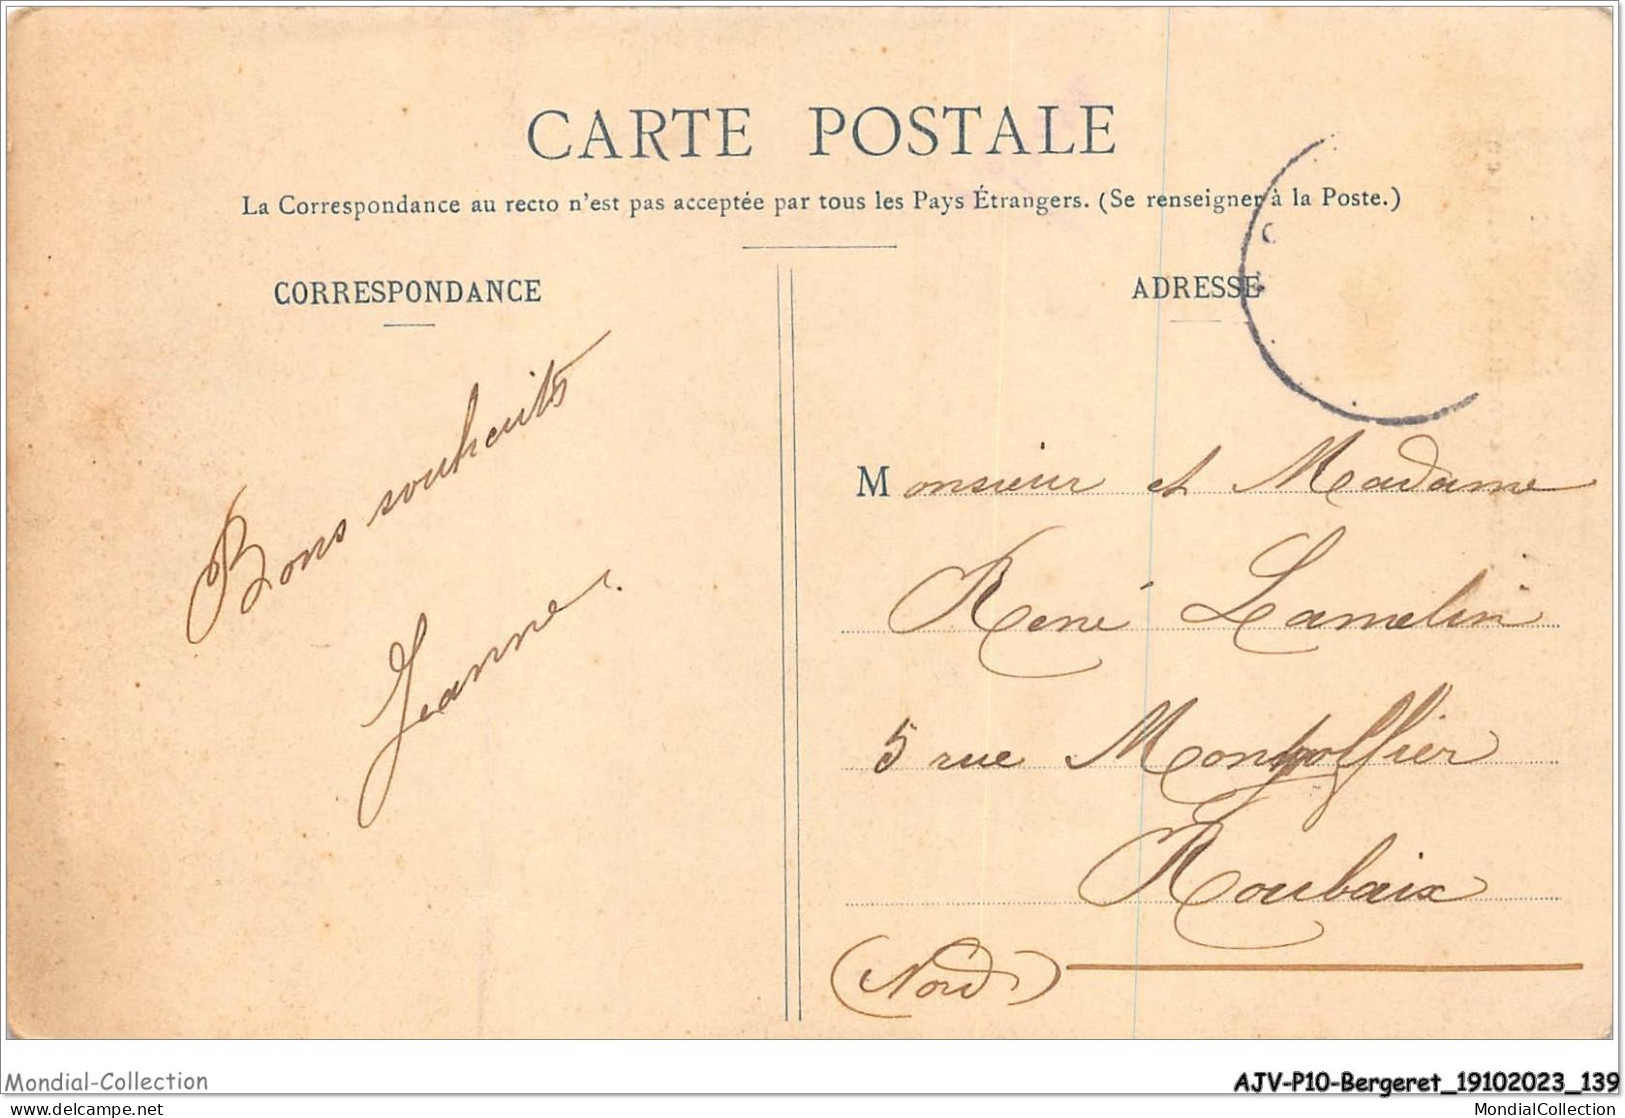 CARTE POSTALE
La Correspondance au recto n'est pas acceptée par tous les Pays Étrangers. (Se renseigner à la Poste.)
CORRESPONDANCE
Bons souhaits
Jeanne.
ADRESSE
Monsieur et Madame
René Lamelin
5 rue Montgolfier
Roubaix
(Nord)
Mondial-Collection
AJV-P10-Bergeret_19102023_139
delcampe.net
MondialCollection